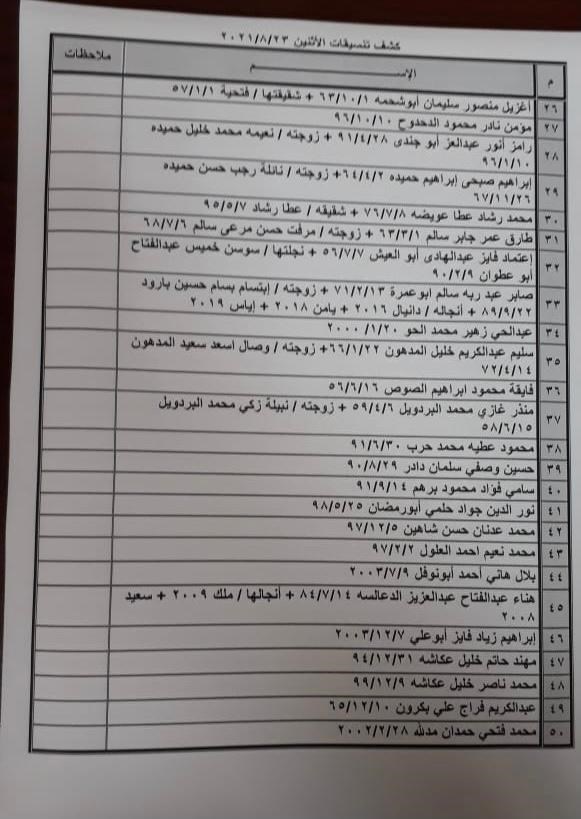 كشف تنسيقات الأثنين ٢٠٢١/٨/٢٣
م الإســــــــــم ملاحظات
٢٦ أغزيل منصور سليمان أبوشحمه ٦٣/١٠/١ + شقيقتها / فتحية ٥٧/١/١
٢٧ مؤمن نادر محمود الدحدوح ٩٦/١٠/١٠
٢٨ رامز أنور عبدالعز أبو جندى ٩١/٤/٢٨ + زوجته / نعيمه محمد خليل حميده
٩٦/١/١٠
٢٩ إبراهيم صبحى إبراهيم حميده ٦٤/٤/٢+ زوجته / نائلة رجب حسن حميده
٦٧/١١/٢٦
٣٠ محمد رشاد عطا عويضه ٧٦/٧/٨ + شقيقه / عطا رشاد ٩٥/٥/٧
٣١ طارق عمر جابر سالم ٦٣/٣/١ + زوجته / مرفت حسن مرعى سالم ٦٨/٧/٦
٣٢ إعتماد فايز عبدالهادى أبو العيش ٥٦/٧/٧ + نجلتها / سوسن خميس عبدالفتاح
أبو عطوان ٩٠/٢/٩
٣٣ صابر عبد ربه سالم ابوعمرة ٧١/٢/١٣ + زوجته / إبتسام بسام حسين بارود
٨٩/٩/٢٢ + أنجاله / دانيال ٢٠١٦ + يامن ٢٠١٨ + إياس ٢٠١٩
٣٤ عبدالحي زهير محمد الحو ٢٠٠٠/١/٢٠
٣٥ سليم عبدالكريم خليل المدهون ٦٦/١/٢٢+ زوجته / وصال اسعد سعيد المدهون
٧٢/٤/١٤
٣٦ فايقة محمود ابراهيم الصوص ٥٦/٦/١٦
٣٧ منذر غازي محمد البردويل ٥٩/٤/٦ + زوجته / نبيلة زكي محمد البردويل
٥٨/٦/١٥
٣٨ محمود عطيه محمد حرب ٩١/٦/٣٠
٣٩ حسين وصفي سلمان دادر ٩٠/٨/٢٩
٤٠ سامي فؤاد محمود برهم ٩١/٩/١٤
٤١ نور الدين جواد حلمي أبورمضان ٩٨/٥/٢٥
٤٢ محمد عدنان حسن شاهين ٩٧/١٢/٥
٤٣ محمد نعيم احمد العلول ٩٧/٢/٢
٤٤ بلال هاني أحمد أبونوفل ٢٠٠٣/٧/٩
٤٥ هناء عبدالفتاح عبدالعزيز الدعالسه ٨٤/٧/١٤ + أنجالها / ملك ٢٠٠٩ + سعيد
٢٠٠٨
٤٦ إبراهيم زياد فايز أبوعلي ٢٠٠٣/١٢/٧
٤٧ مهند حاتم خليل عكاشه ٩٤/١٢/٣١
٤٨ محمد ناصر خليل عكاشه ٩٩/١٢/٩
٤٩ عبدالكريم فراج علي بكرون ٦٥/١٢/١٠
٥٠ محمد فتحي حمدان مدلله ٢٠٠٢/٢/٢٨